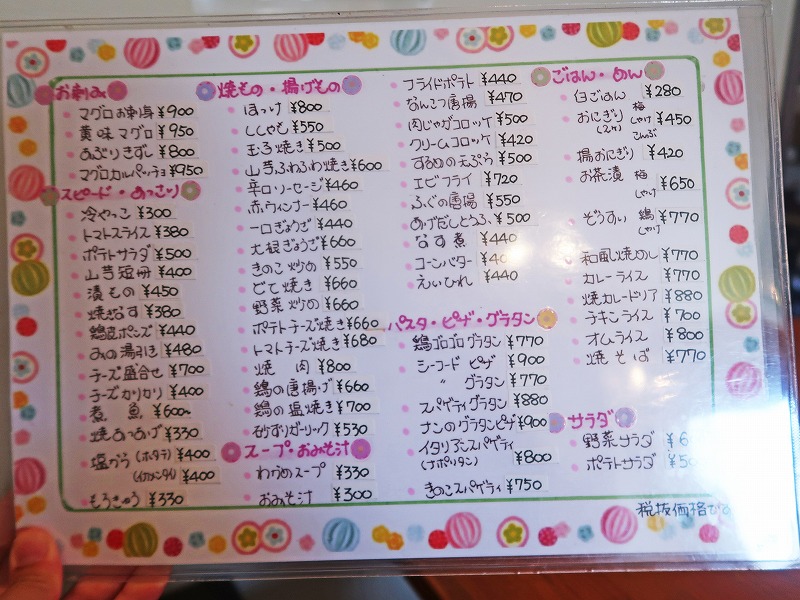 お刺身
マグロお刺身 ¥900
黄味マグロ ¥950
あぶりきずし ¥800
マグロカルパッチョ ¥950
スピード・めっさり
冷やっこ ¥300
トマトスライス ¥380
ポテトサラダ ¥500
山芋短冊 ¥400
漬もの ¥450
焼きなす ¥380
鶏皮ポンズ ¥440
みの湯引き ¥480
チーズ盛合せ ¥700
チーズかりかり ¥400
煮魚 ¥600
焼あつあげ ¥330
塩から (ホタテ) ¥400
(イカメンタイ) ¥400
もろきゅう ¥330
焼もの・揚げもの
ほっけ ¥800
ししゃも ¥550
玉子焼き ¥500
山芋ふわふわ焼き ¥600
辛口ソーセージ ¥460
赤ウィンナー ¥460
一口ぎょうざ ¥440
大根ぎょうざ ¥660
きのこ炒め ¥550
どて焼き ¥660
野菜炒め ¥660
ポテトチーズ焼き ¥660
トマトチーズ焼き ¥680
焼肉 ¥800
鶏の唐揚げ ¥660
鶏の塩焼き ¥700
砂ずりガーリック ¥530
スープ・おみそ汁
わかめスープ ¥330
おみそ汁 ¥300
フライドポテト ¥440
なんこつ唐揚 ¥470
肉じゃがコロッケ ¥500
クリームコロッケ ¥420
するめの天ぷら ¥500
エビフライ ¥720
ふぐの唐揚 ¥550
あげだしとうふ ¥500
なす煮 ¥440
コーンバター
えいひれ ¥440
パスタ・ピザ・グラタン
鶏ゴロゴログラタン ¥770
シーフードピザ ¥900
〃 グラタン ¥770
スパゲティグラタン ¥880
ナンのグラタンピザ ¥900
イタリアンスパゲティ
(ナポリタン) ¥800
きのこスパゲティ ¥750
ごはん・めん
白ごはん ¥280
おにぎり (2ヶ) 梅 しゃけ こんぶ ¥450
揚おにぎり ¥420
お茶漬 梅 しゃけ ¥650
ぞうすい 鶏 しゃけ ¥770
和風焼めし ¥770
カレーライス ¥770
焼カレードリア ¥880
チキンライス ¥700
オムライス ¥800
焼そば ¥770
サラダ
野菜サラダ
ポテトサラダ
税抜価格